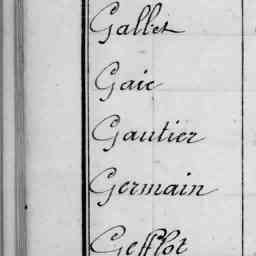 Gallet
Gaie
Gautier
Germain
Gefflot